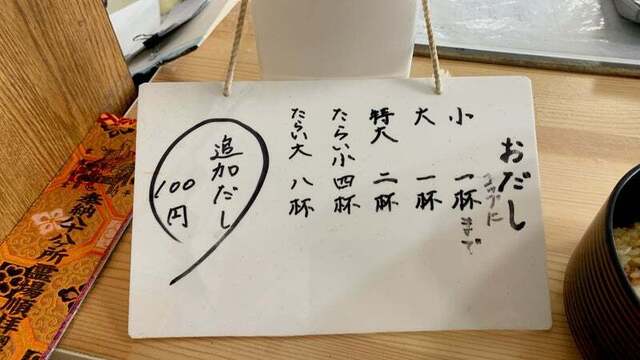 おだし
コップに
小 一杯まで
大 一杯
特大 二杯
たらい小 四杯
たらい大 八杯
追加だし
100円
奉納八十八ヶ所
霊場順拝